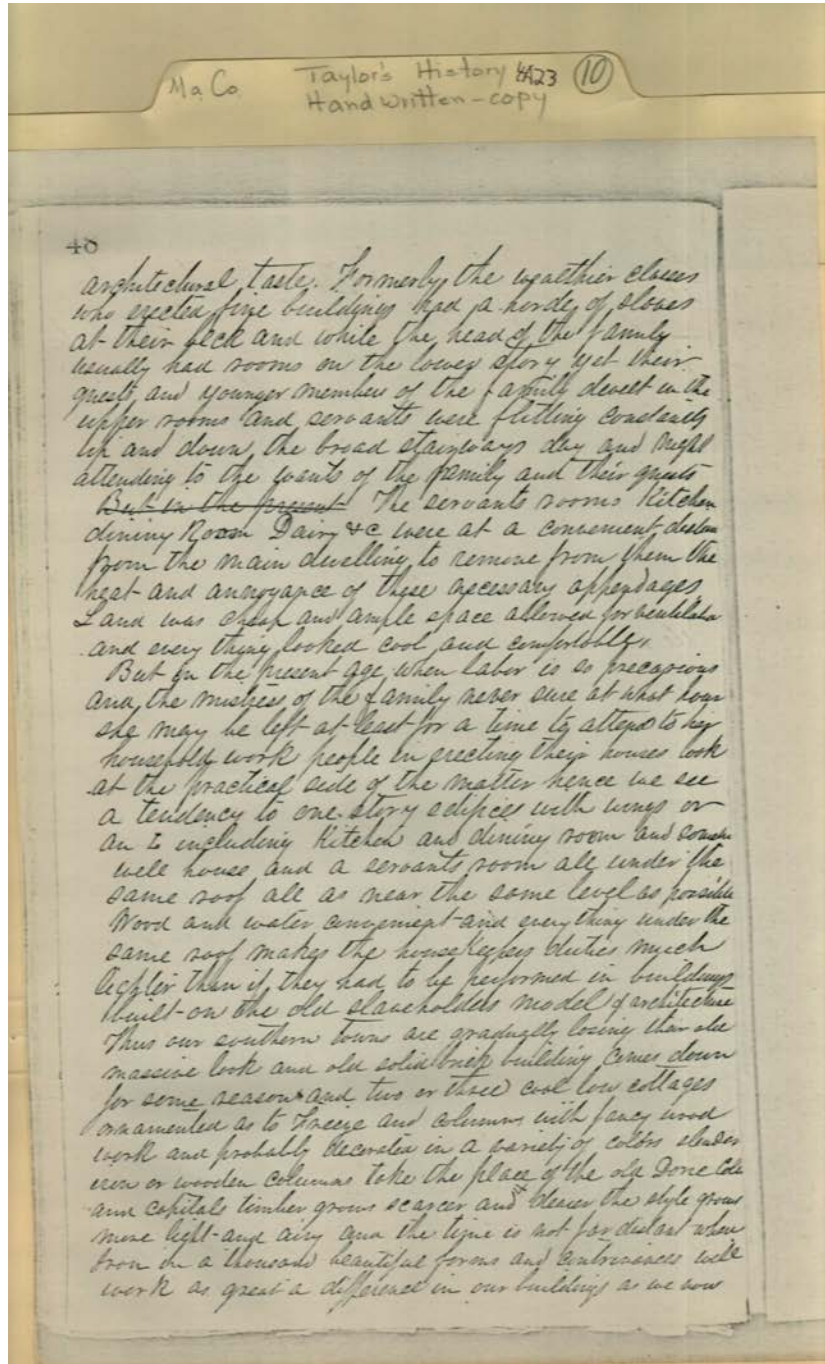 Ma Co. Taylor's History 4A23 10
Handwritten-copy
48
architectural taste. Formerly the wealthier classes
who erected fine buildings had a horde of slaves
at their beck and while the head of the family
usually had rooms on the lower story yet their
guests and younger member of the family dwelt in the
upper rooms and servants were flitting constantly
up and down the broad stairways day and night
attending to the wants of the family and their guests
But in the present The servants rooms Kitchen
dining Room Dairy &c were at a convenient distan
from the main dwelling to remove from them the
heat and annoyance of these necessary appendages.
Land was cheap and ample space allowed for ventilation
and every thing looked cool and comfortable.
But in the present age when labor is so precarious
and the mistress of the family never sure at what hour
she may be left at least for a time to attend to her
household work people in erecting their houses look
at the practical side of the matter hence we see
a tendency to one story edifices with wings or
an L including Kitchen and dining room and
well house and a servants room all under the
same roof all as near the same level as possible
Wood and water convenient and everything under the
same roof makes the housekeepers duties much
lighter than if they had to be performed in buildings
built on the old slaveholders model of architecture
Thus our southern towns are gradually losing their old
massive look and old solid brick building comes down
for some reason and two or three cool low cottages
ornamented as to Freeze and columns with fancy wood
work and probably decorated in a variety of colors slender
iron or wooden columns take the place of the old Doric
and capitals timber grows scarcer and dearer the style grows
more light and airy and the time is not far distant when
Iron in a thousand beautiful forms and contrivances will
work as great a difference in our buildings as we now